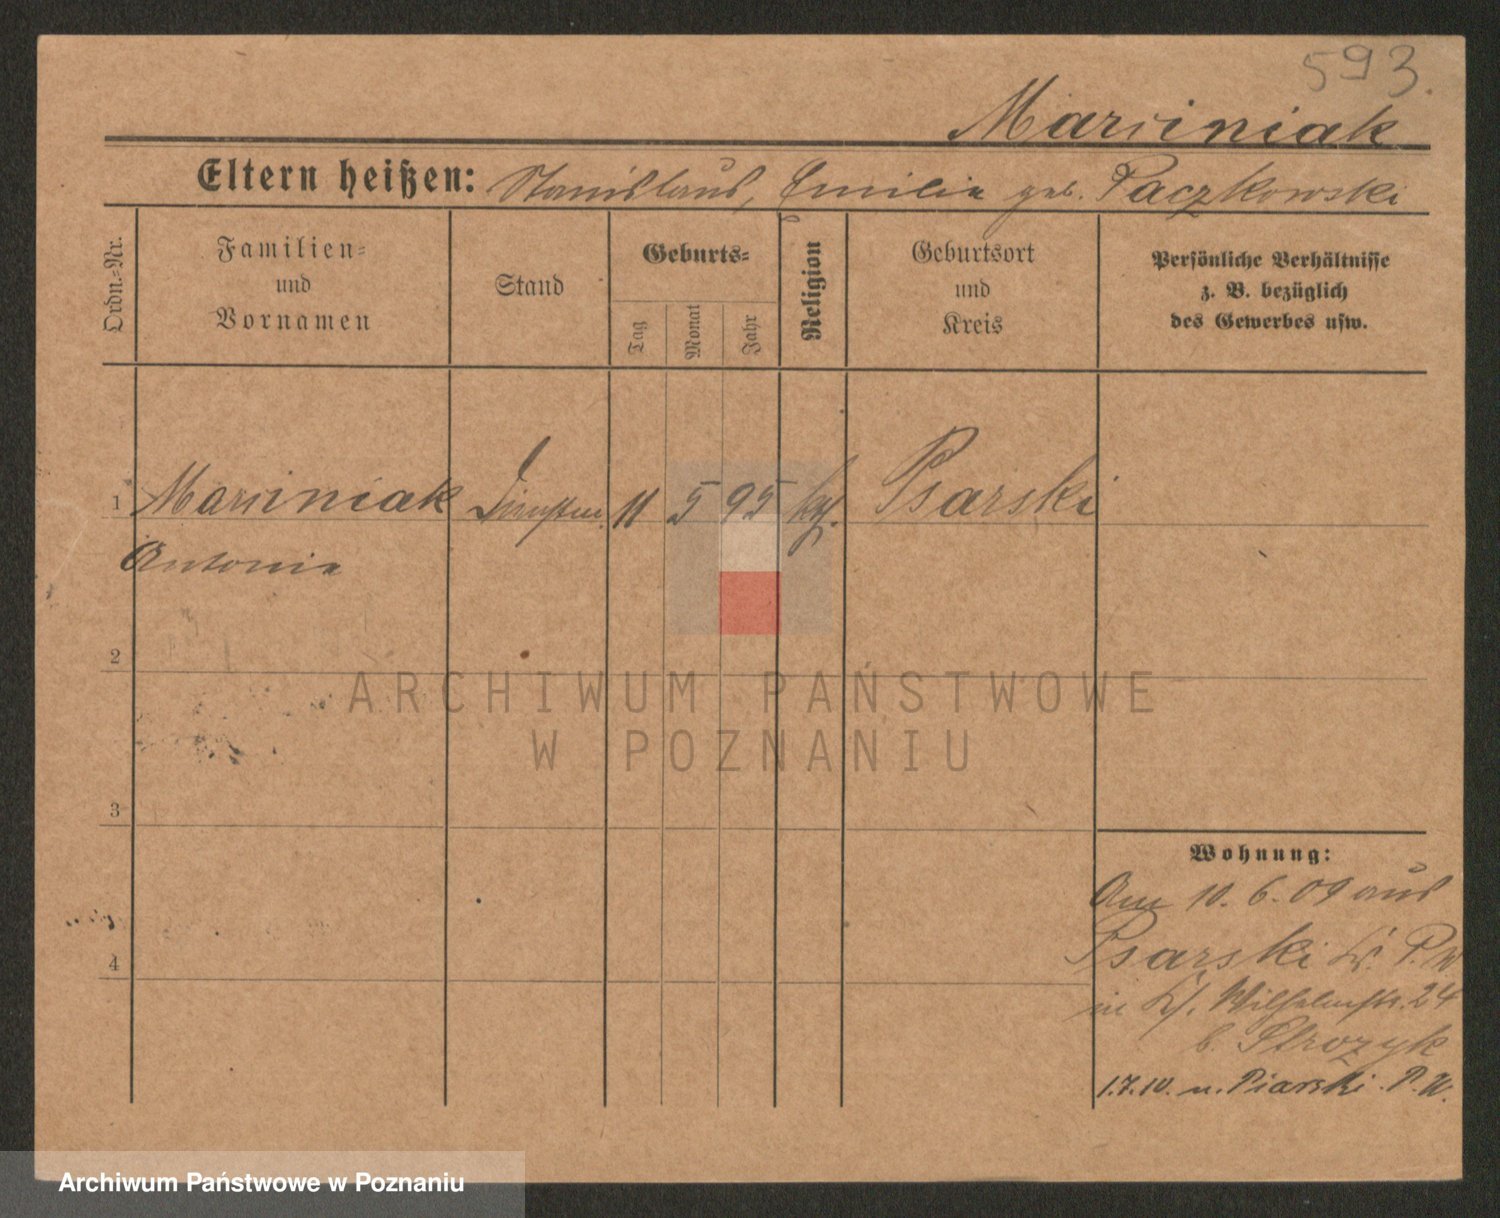 593.
Marciniak
Eltern heißen: Stanislaus, Emilie geb. Paczkowski
Ordn.-Nr.
Familien-
und
Vornamen
Stand
Geburts-
Tag
Monat
Jahr
Religion
Geburtsort
und
Kreis
Persönliche Verhältnisse
z. B. bezüglich
des Gewerbes usw.
1 Marciniak 11 5 95 kth. Psarski
Antonie
2
ARCHIWUM PAŃSTWOWE
W POZNANIU
3
Wohnung:
Am 10. 6. 09 aus
Psarski Kr. P. W
4
in Wilhelmstr. 24
b. Strozyk
1.7.10. n. Psarski. P. W.
Archiwum Państwowe w Poznaniu